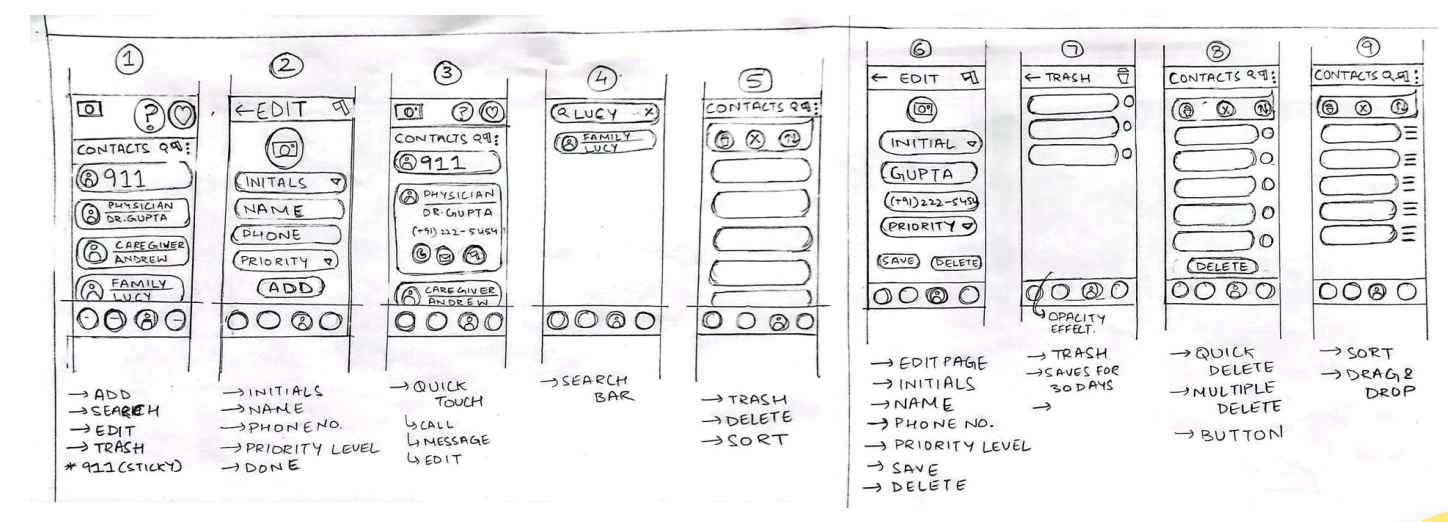 1
?
CONTACTS
911
PHYSICIAN
DR.GUPTA
CAREGIVER
ANDREW
FAMILY
LUCY
→ ADD
→ SEARCH
→ EDIT
→ TRASH
* 911 (STICKY)
2
← EDIT
INITALS
NAME
PHONE
PRIORITY
ADD
→ INITIALS
→ NAME
→ PHONE NO.
→ PRIORITY LEVEL
→ DONE
3
?
CONTACTS
911
PHYSICIAN
DR.GUPTA
(+91) 222-5454
CAREGIVER
ANDREW
→ QUICK
TOUCH
↳ CALL
↳ MESSAGE
↳ EDIT
4
LUCY X
FAMILY
LUCY
→ SEARCH
BAR
5
CONTACTS
→ TRASH
→ DELETE
→ SORT
6
← EDIT
INITIAL
GUPTA
(+91) 222-5454
PRIORITY
SAVE DELETE
→ EDIT PAGE
→ INITIALS
→ NAME
→ PHONE NO.
→ PRIORITY LEVEL
→ SAVE
→ DELETE
7
← TRASH
OPACITY
EFFECT.
→ TRASH
→ SAVES FOR
30 DAYS
→
8
CONTACTS
DELETE
→ QUICK
DELETE
→ MULTIPLE
DELETE
→ BUTTON
9
CONTACTS
→ SORT
→ DRAG &
DROP